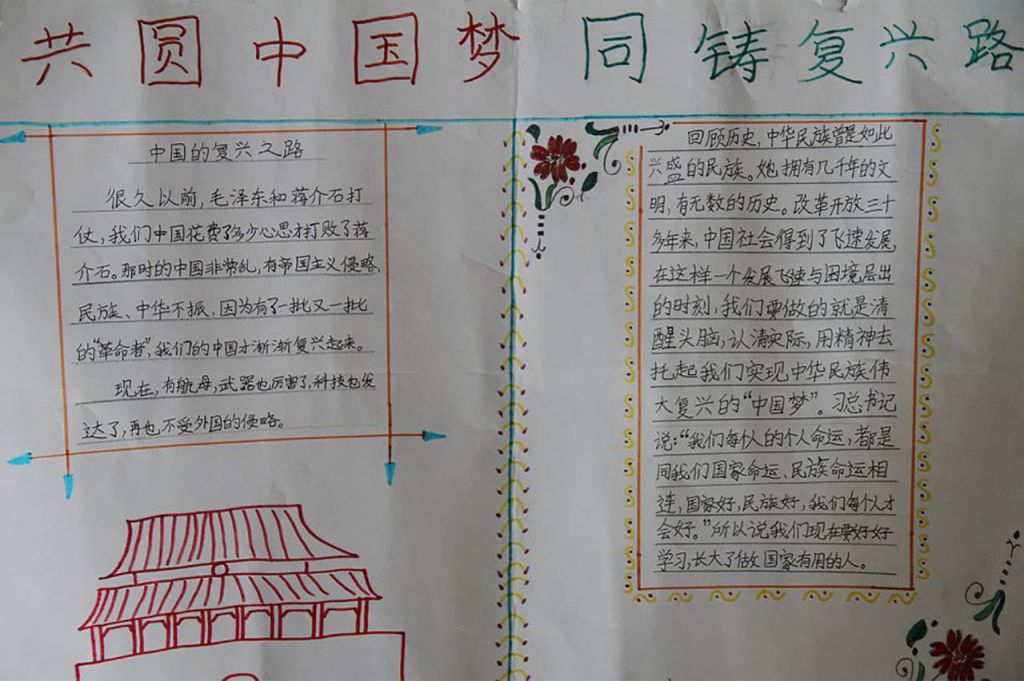 共圆中国梦 同铸复兴路
中国的复兴之路
很久以前,毛泽东和蒋介石打
仗,我们中国花费了多少心思才打败了蒋
介石。那时的中国非常乱,有帝国主义侵略,
民族、中华不振,因为有了一批又一批
的"革命者",我们的中国才渐渐复兴起来。
现在,有航母,武器也厉害了,科技也发
达了,再也不受外国的侵略。
回顾历史,中华民族曾是如此
兴盛的民族。她拥有几千年的文
明,有无数的历史。改革开放三十
多年来,中国社会得到了飞速发展,
在这样一个发展飞速与困境层出
的时刻,我们要做的就是清
醒头脑,认清实际,用精神去
托起我们实现中华民族伟
大复兴的"中国梦"。习总书记
说:"我们每个人的个人命运,都是
同我们国家命运、民族命运相
连,国家好,民族好,我们每个人才
会好。"所以说我们现在要好好
学习,长大了做国家有用的人。